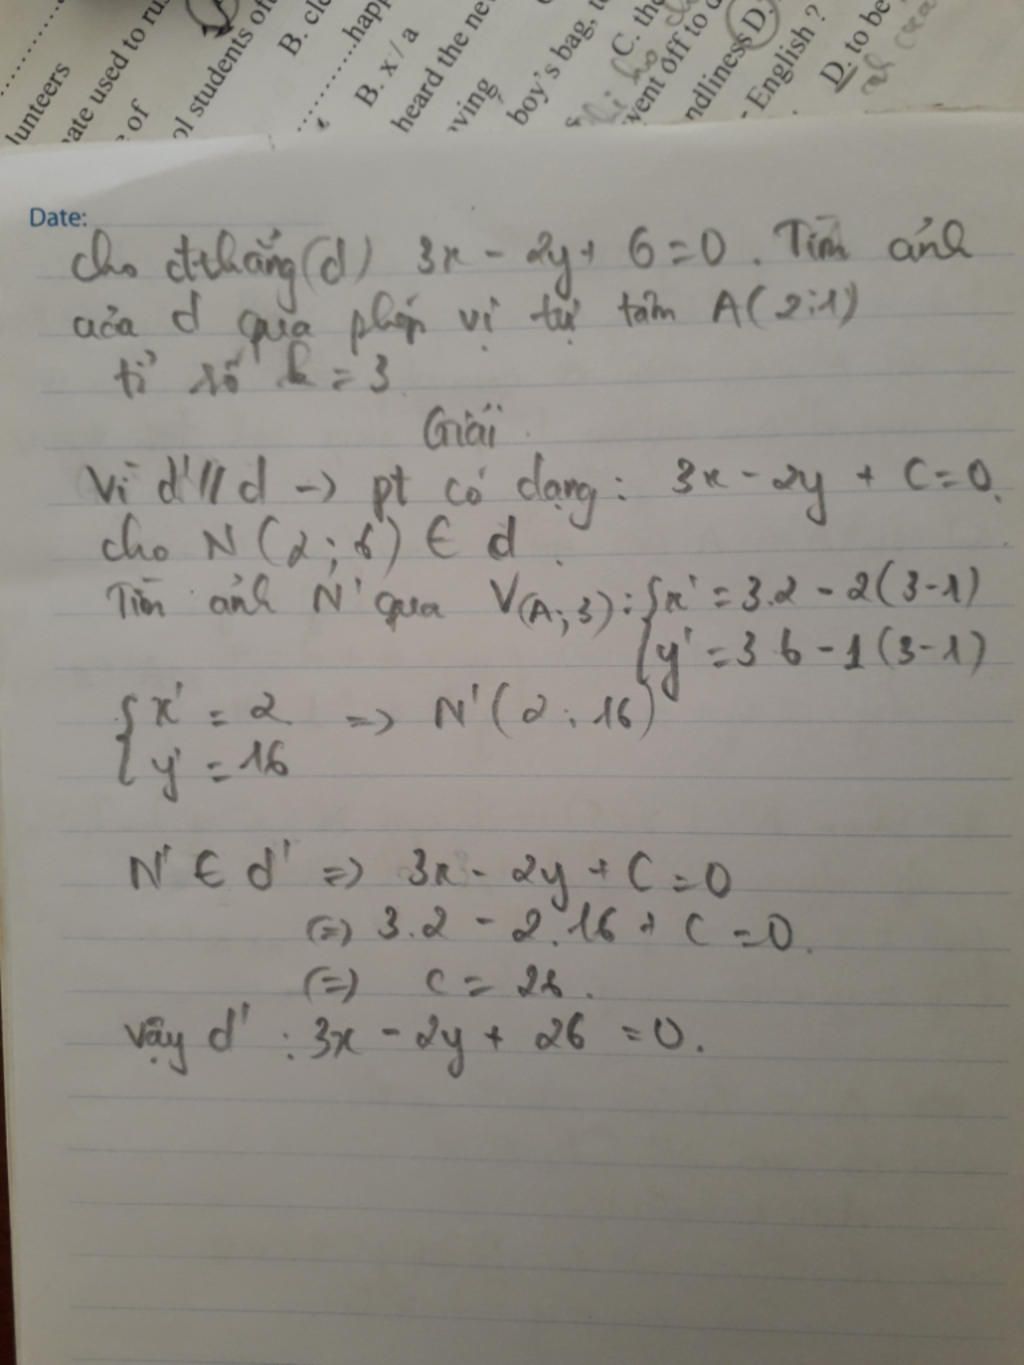 lunteers
ate used to ru
e of
ol students of
B. cle
..............happ
B. x / a
heard the ne
ving
boy's bag,
C. the
went off to
ndliness D.
- English ?
D. to be
Date:
Cho đthẳng (d) 3x - 2y + 6 = 0. Tìm ảnh
của d qua phép vị tự tâm A(2;1)
tỉ số k = 3
Giải
Vì d' // d -> pt có dạng: 3x - 2y + C = 0.
cho N(2; 6) ∈ d.
Tìm ảnh N' qua V(A; 3): { x' = 3.2 - 2(3-1)
y' = 3.6 - 1(3-1)
{ x' = 2 => N'(2; 16)
y' = 16
N' ∈ d' => 3x - 2y + C = 0
(=) 3.2 - 2.16 + C = 0.
(=) C = 26.
Vậy d' : 3x - 2y + 26 = 0.